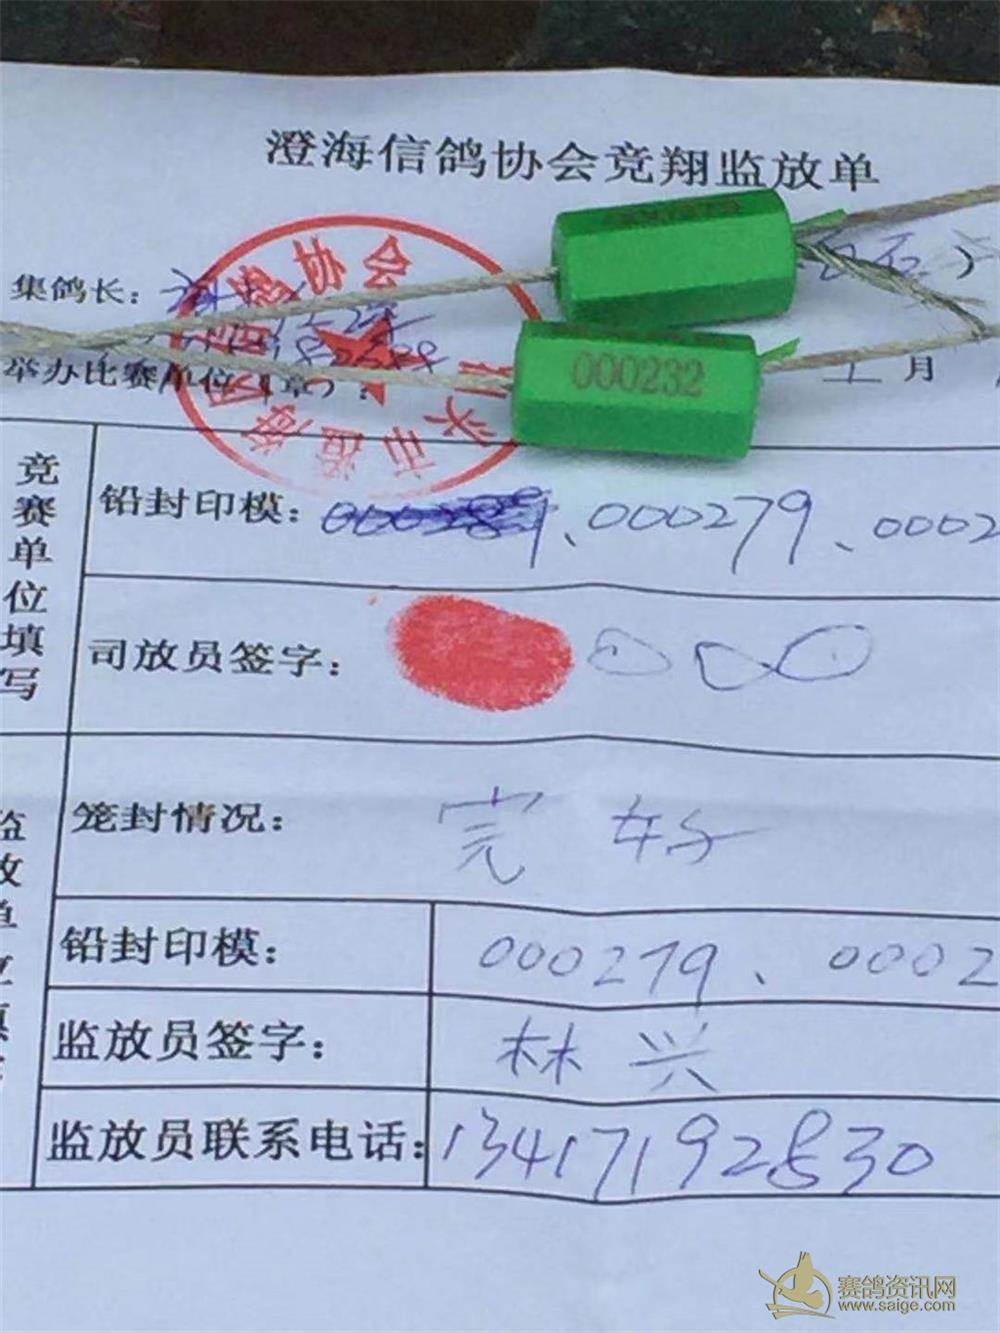 澄海信鸽协会竞翔监放单
集鸽长:
000232
举办比赛单位（章）:
月
竞赛单位填写
铅封印模: 000279、000279、0002
司放员签字:
笼封情况: 完好
铅封印模: 000279、0002
监放员签字: 林兴
监放员联系电话: 13417192830
赛鸽资讯网
www.saige.com